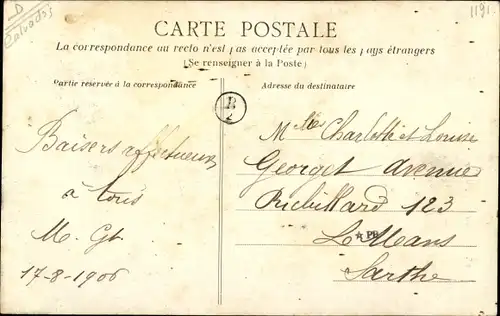 D
Calvados
1191
CARTE POSTALE
La correspondance au recto n'est pas acceptée par tous les pays étrangers
(Se renseigner à la Poste)
Partie réservée à la correspondance
Adresse du destinataire
B
2
Baisers affectueux
à tous
M. Gt
17-8-1906
Mlles Charlotte et Louise
Georget Avenue
123
Le Mans
PB
Sarthe